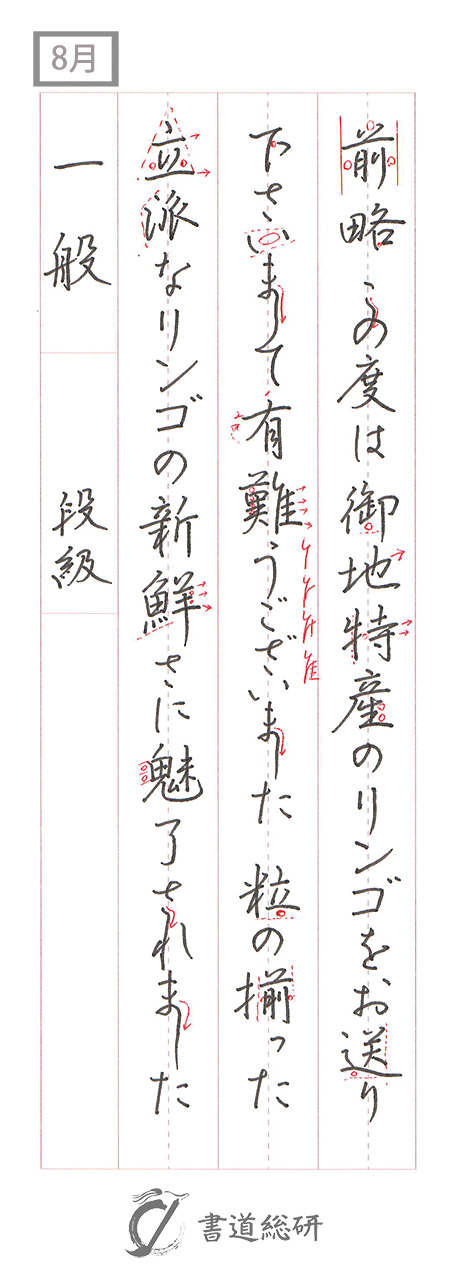 8月
前略 この度は御地特産のリンゴをお送り
下さいまして有難うございました 粒の揃った
立派なリンゴの新鮮さに魅了されました
一般 段級
書道総研